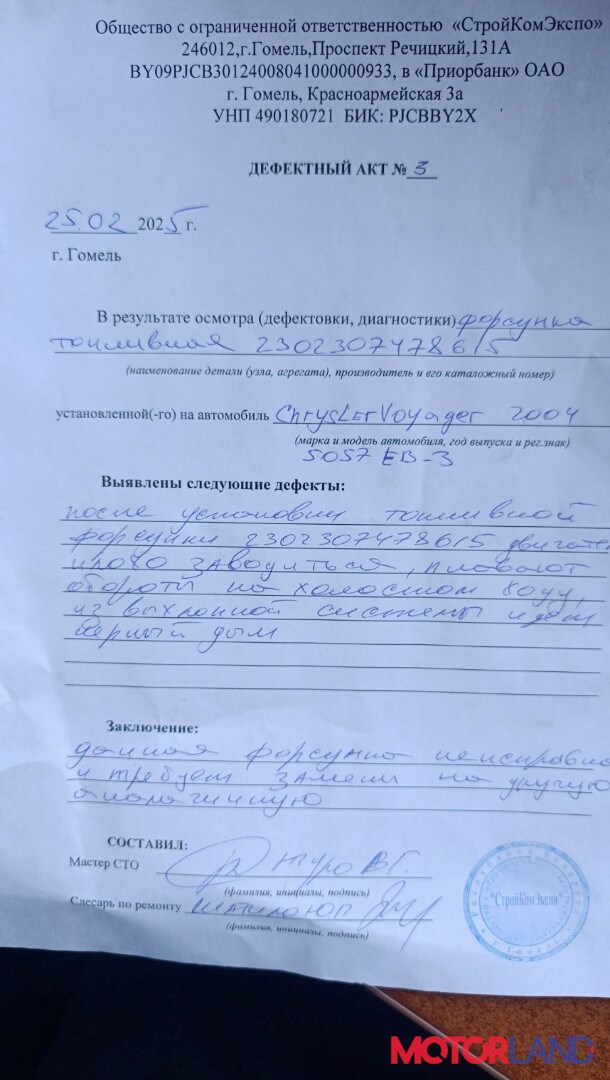 Общество с ограниченной ответственностью «СтройКомЭкспо»
246012,г.Гомель,Проспект Речицкий,131А
BY09PJCB30124008041000000933, в «Приорбанк» ОАО
г. Гомель, Красноармейская 3а
УНП 490180721 БИК: PJCBBY2X
ДЕФЕКТНЫЙ АКТ № 3
25.02 2025 г.
г. Гомель
В результате осмотра (дефектовки, диагностики) форсунка
топливная 2302307478615
(наименование детали (узла, агрегата), производитель и его каталожный номер)
установленной(-го) на автомобиль Chrysler Voyager 2004
(марка и модель автомобиля, год выпуска и рег.знак)
5057 EB-3
Выявлены следующие дефекты:
после установки топливной
форсунки 2302307478615 двигатель
плохо заводиться, плавают
обороты на холостом ходу,
из выхлопной системы идет
черный дым
Заключение:
данная форсунка неисправна
и требует замены на другую
аналогичную
СОСТАВИЛ:
Мастер СТО
(фамилия, инициалы, подпись)
Слесарь по ремонту
(фамилия, инициалы, подпись)
"СтройКомЭкспо"
MOTORLAND